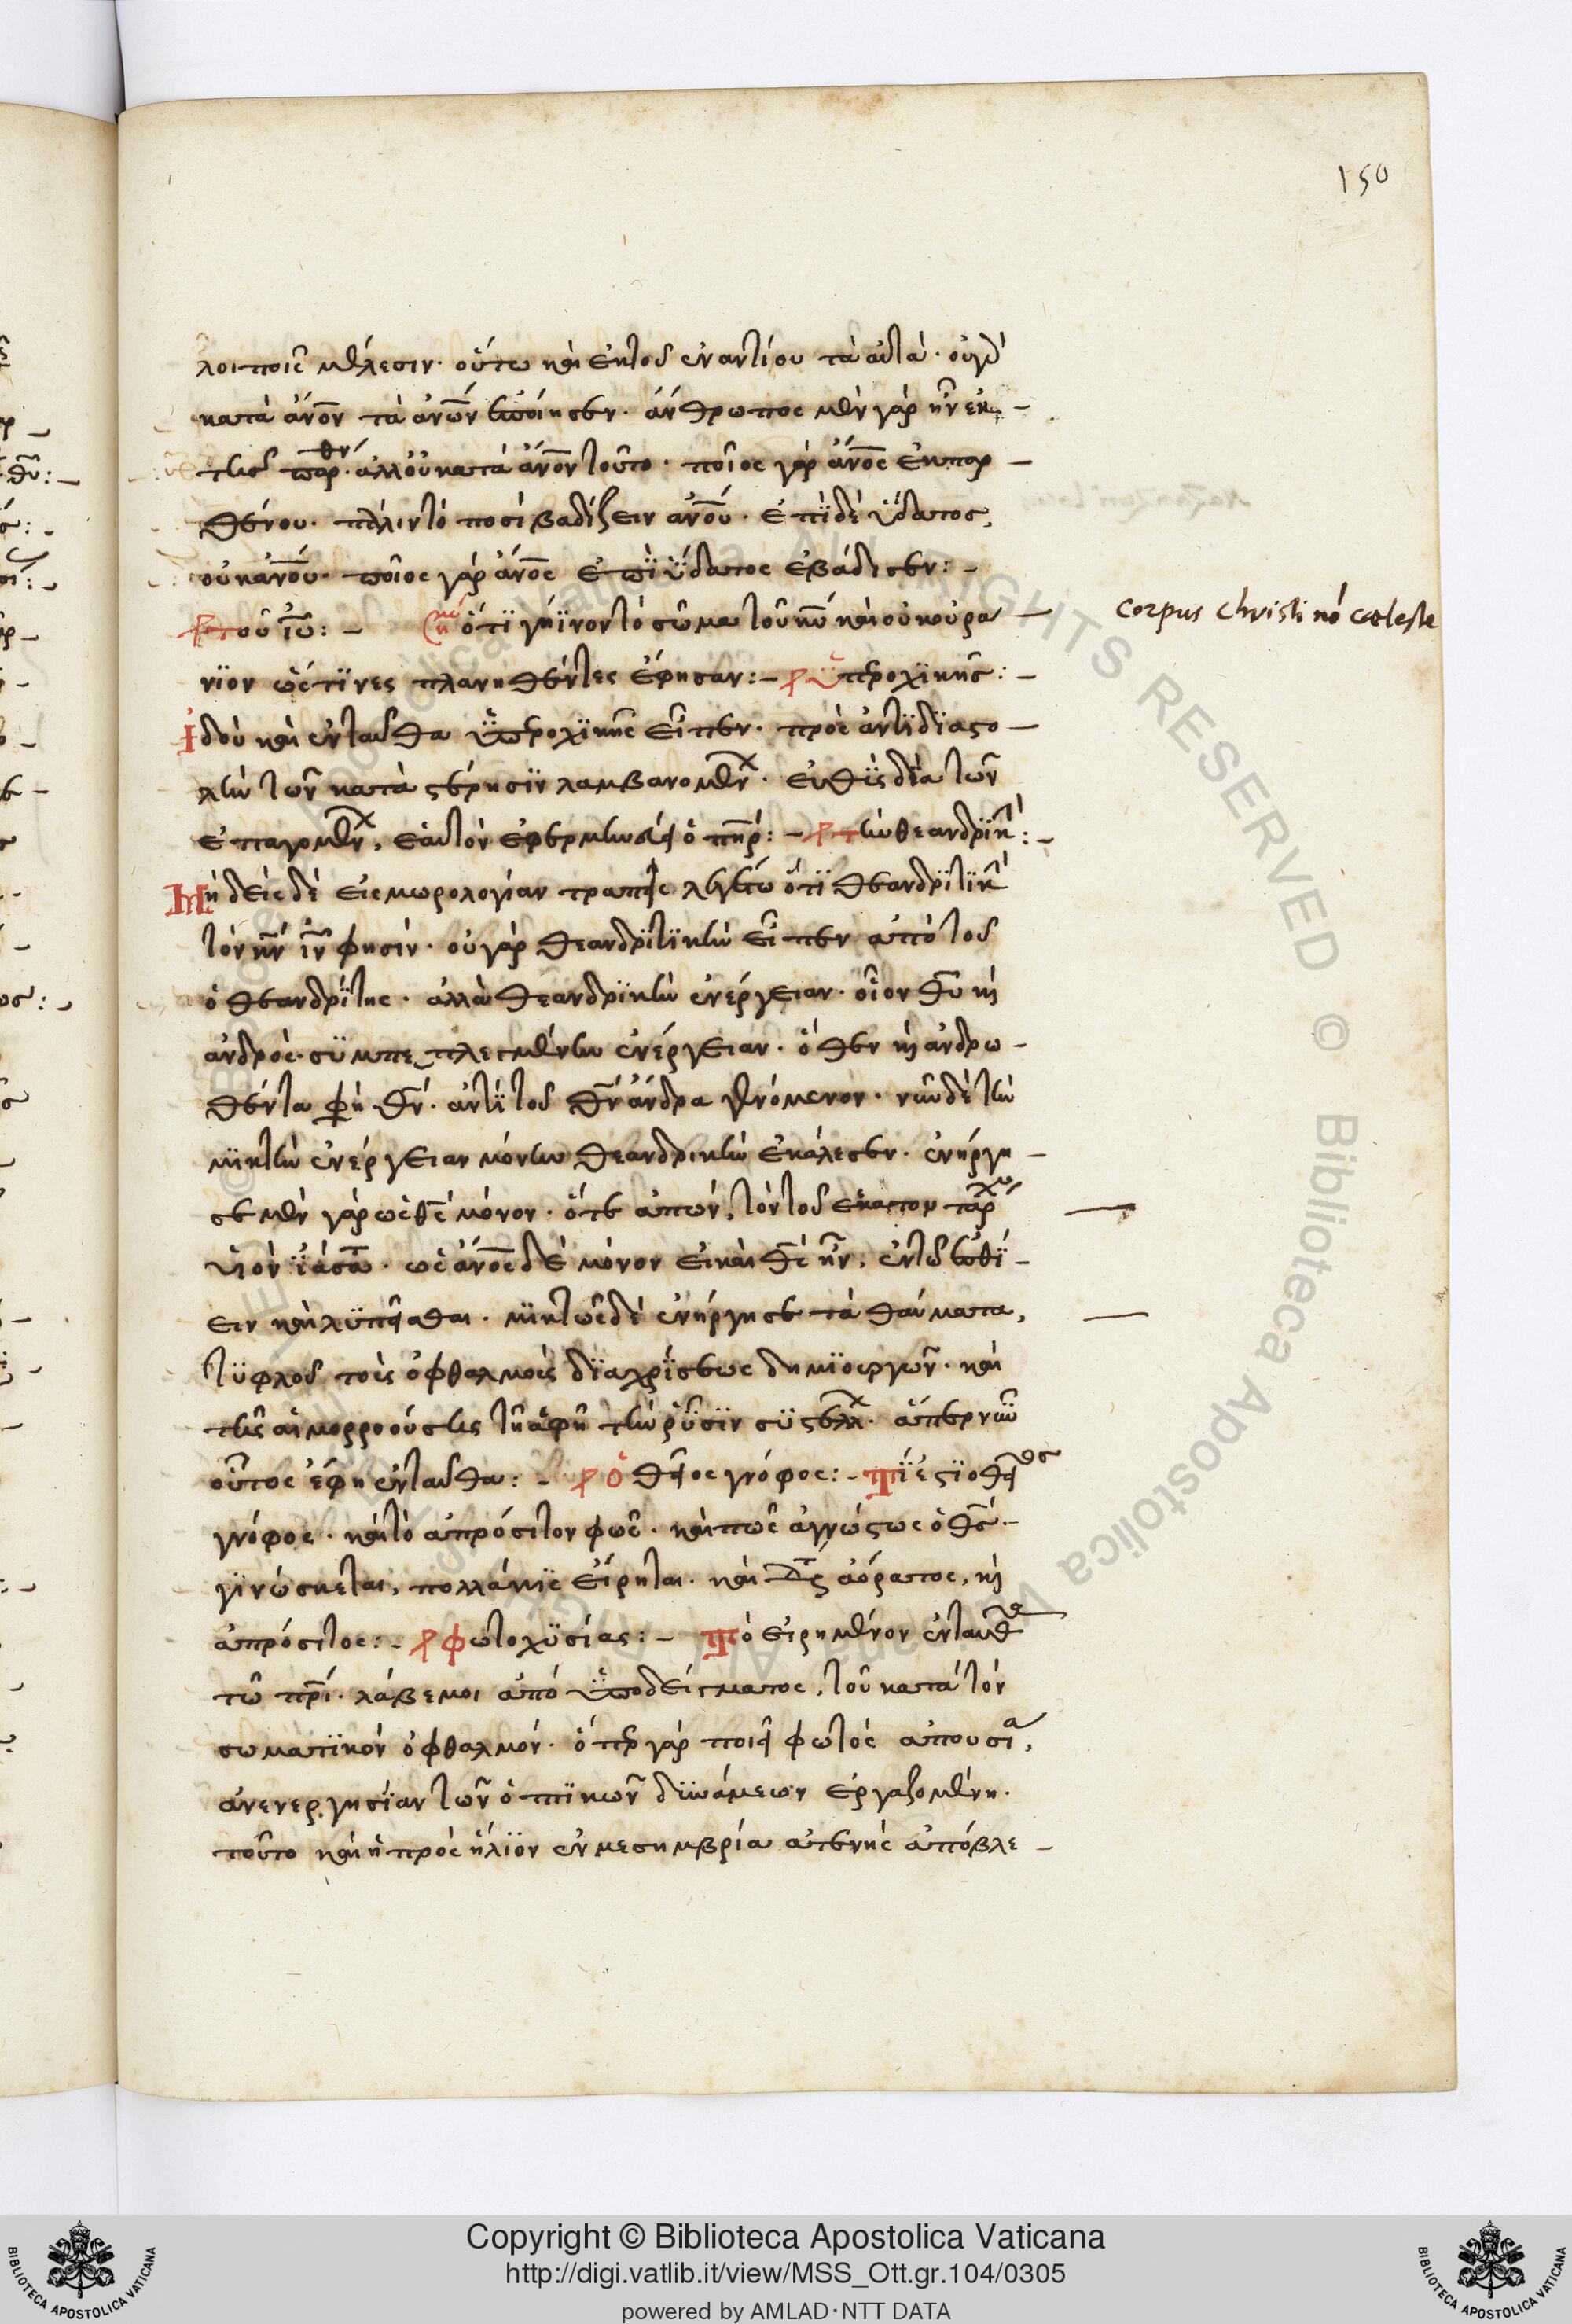 150
λοιποῖς μέλεσιν. οὕτω καὶ ἐκ τοῦ ἐναντίου τὰ αὐτὰ. οὐ γὰρ
κατὰ ἄνον τὰ ἀνων ἐποίησεν. ἄνθρωπος μὲν γὰρ ἦν ἐκ
τῆς παρθέν. ἀλλ' οὐ κατὰ ἄνον τοῦτο. ποῖος γὰρ ἄνος ἐκ παρ
θένου. πάλιν τὸ ποσὶ βαδίζειν ἀνου. ἐπὶ δὲ ὕδατος,
οὐκ ἀνου. ποῖος γὰρ ἄνος ἐπὶ ὕδατος ἐβάδισεν:-
τοῦ ἰῦ:- ὅτι γήϊνον τὸ σῶμα τοῦ κυ καὶ οὐκ οὐρά
νιον ὥς τινες πλανηθέντες ἔφησαν:- ὑπεροχικῆς:-
ἰδοὺ καὶ ἐνταῦθα ὑπεροχικῆς εἶπεν. πρὸς ἀντιδιαστο
λὴν τῶν κατὰ στέρησιν λαμβανομεν. εὐθὺς διὰ τῶν
ἐπαγομεν, ἑαυτὸν ἐφερμηνεύει ὁ πηρ:- τὴν θεανδρικ:-
Μηδεὶς δὲ εἰς μωρολογίαν τραπεὶς λεγέτω ὅτι θεανδρίτικ
τὸν κν ιν φησίν. οὐ γὰρ θεανδριτικὴν εἶπεν ἀπὸ τοῦ
ὁ θεανδρίτης. ἀλλὰ θεανδρικὴν ἐνέργειαν. οἷον θυ καὶ
ἀνδρὸς συμπεπλεγμένην ἐνέργειαν. ὅθεν καὶ ἀνδρω
θέντα φη θν. ἀντὶ τοῦ θν ἄνδρα γενόμενον. νῦν δὲ τὴν
μικτὴν ἐνέργειαν μόνην θεανδρικὴν ἐκάλεσεν. ἐνήργη
σε μὲν γὰρ ὡς θς μόνον. ὅτε ἀπὼν, τὸν τοῦ ἑκατοντάρχου
υἱὸν ἰάσατο. ὡς ἄνος δὲ μόνον εἰ καὶ θς ἦν, ἐν τῷ ἐσθί
ειν καὶ λυπεῖσθαι. μικτῶς δὲ ἐνήργησε τὰ θαύματα,
τυφλοῦ τοῖς ὀφθαλμοῖς διὰ χρίσεως δημιουργῶν. καὶ
τῆς αἱμορροούσης τῇ ἁφῇ τὴν ῥύσιν συστέλλ. ἅπερ νῦν
οὗτος ἔφη ἐνταῦθα:- ὁ θεῖος γνόφος:- Τί ἐστι ὁ θεῖος
γνόφος. καὶ τὸ ἀπρόσιτον φῶς. καὶ πῶς ἀγνώστως ὁ θς
γινώσκεται, πολλάκις εἴρηται. καὶ ἀόρατος, καὶ
ἀπρόσιτος:- φωτοχυσίας:- Τὸ εἰρημένον ἐνταῦθ
τῷ πρι. λάβε μοι ἀπὸ ὑποδείγματος, τοῦ κατὰ τὸν
σωματικὸν ὀφθαλμόν. ὅπερ γὰρ ποιεῖ φωτὸς ἀπουσία,
ἀνενεργησίαν τῶν ὀπτικῶν δυνάμεων ἐργαζομένη.
τοῦτο καὶ ἡ πρὸς ἥλιον ἐν μεσημβρία ἀτενὴς ἀπόβλε
corpus christi nō cœleste
Copyright © Biblioteca Apostolica Vaticana
http://digi.vatlib.it/view/MSS_Ott.gr.104/0305
powered by AMLAD·NTT DATA